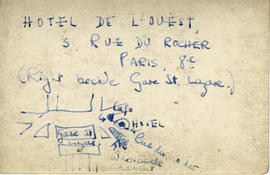 HOTEL DE L'OUEST,
3, RUE DU ROCHER
PARIS, 8e
(Right beside Gare St. Lazare.)
HOTEL
Gare St
Lazare
Rue du